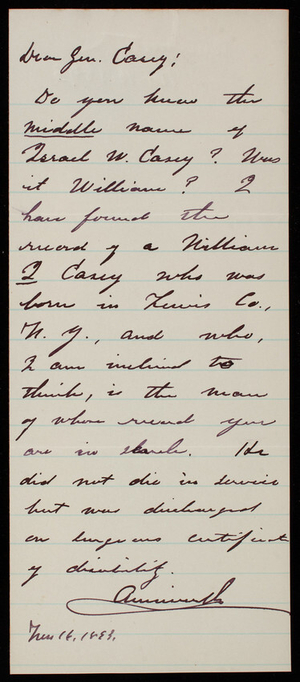 Dear Gen. Casey:
Do you know the
middle name of
Israel W. Casey? Was
it William? I
have found the
record of a William
I Casey who was
born in Lewis Co.,
N. Y., and who,
I am inclined to
think, is the man
of whose record you
are in search. He
did not die in service
but was discharged
on surgeons certificate
of disability.
Ainsworth
16, 1889.